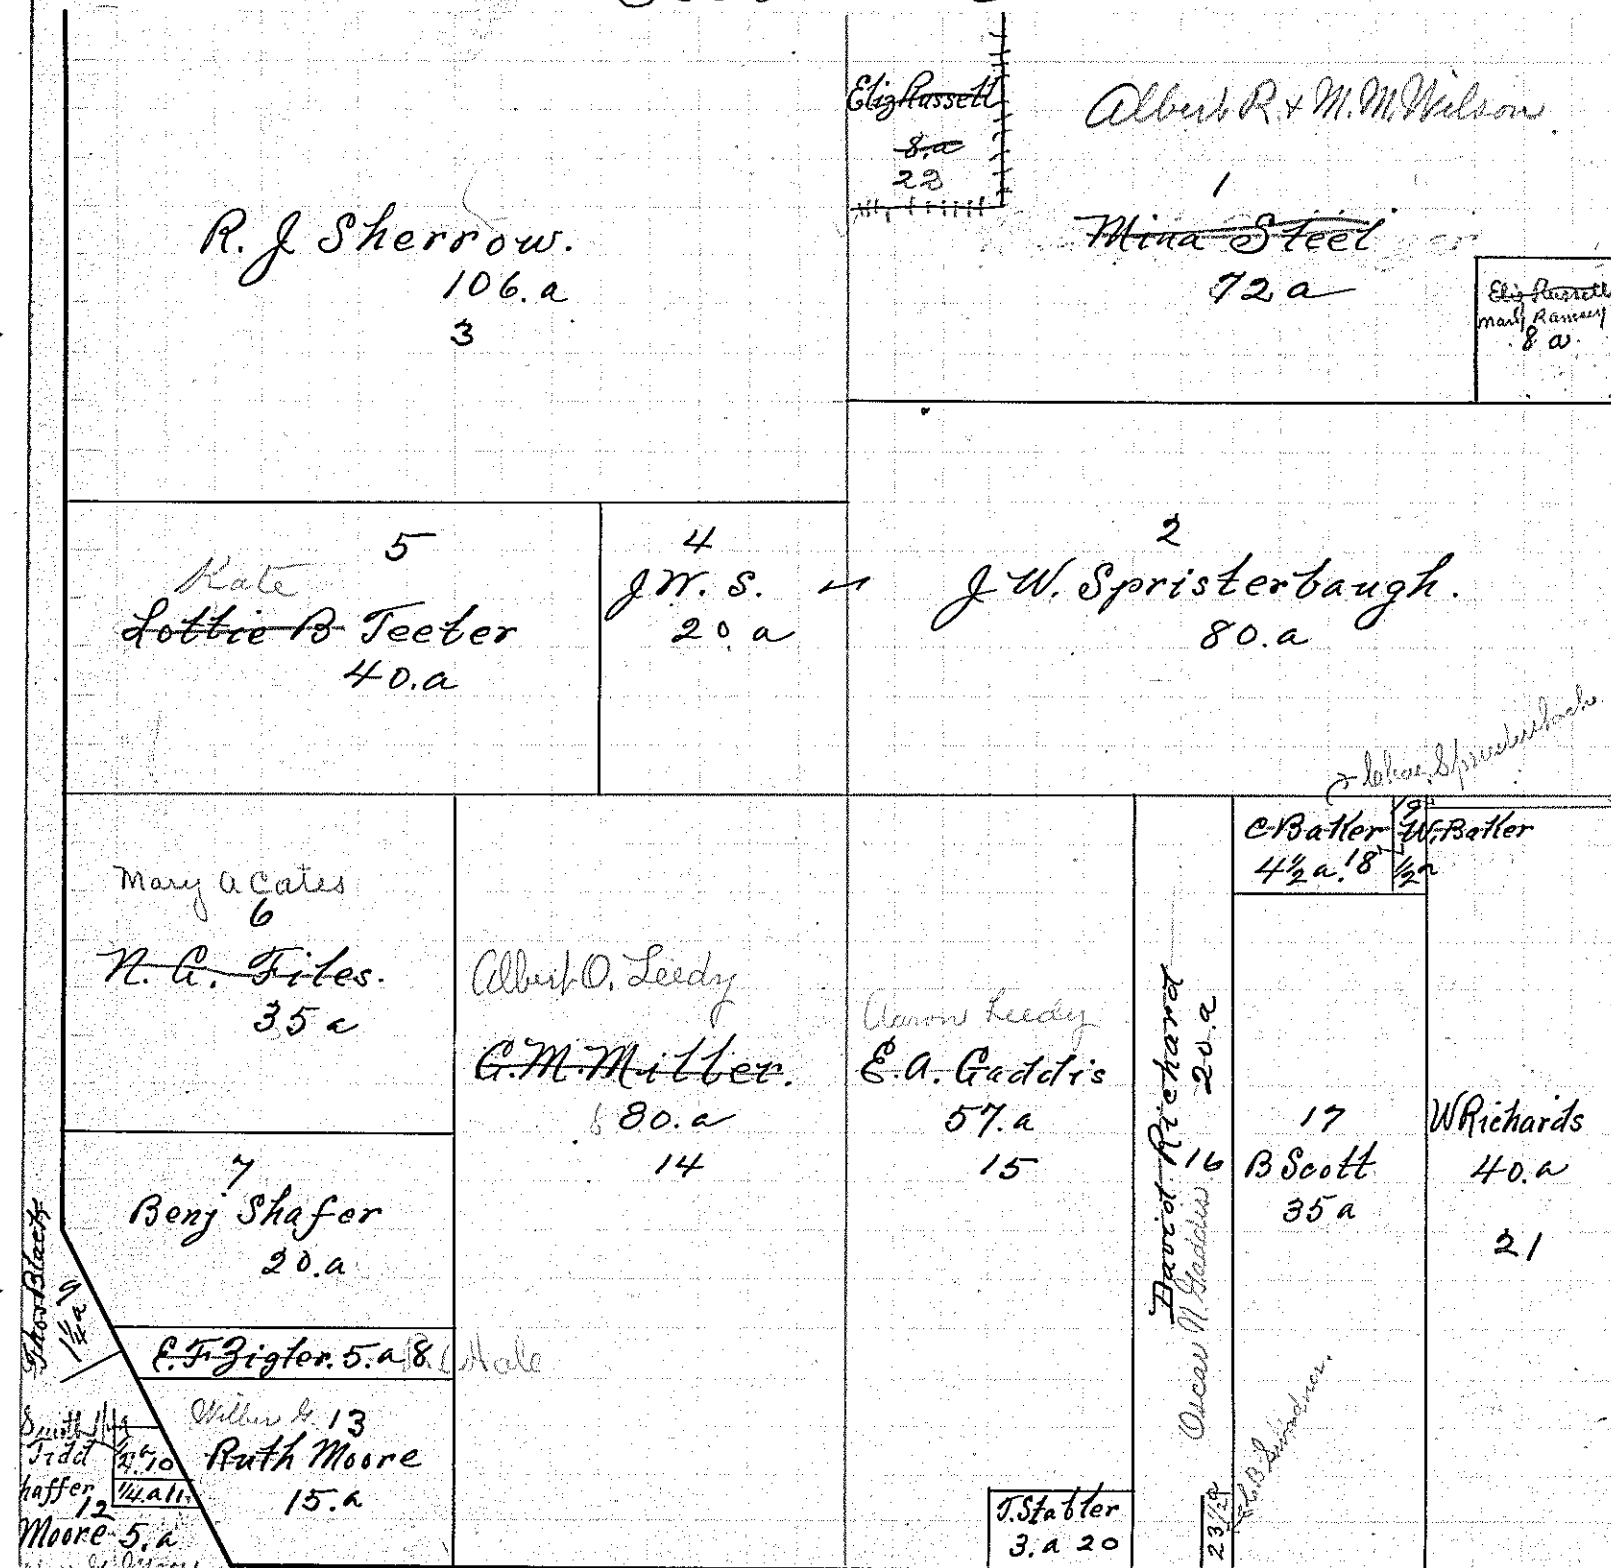 Eliz Russell
8.a
22
Albert R. & M. M. Wilson
1
Mina Steel
72 a
R. J Sherrow.
106.a
3
Eliz Russell
Mary Ramsey
8 a.
5
Kate
Lottie B Teeter
40.a
4
J W. S.
20.a
2
J W. Spristerbaugh.
80.a
Chas.
C Baker
4½ a. 18
19
W. Baker
½ a
Mary A Cates
6
N. A. Files.
35 a
Albert O. Leedy
G. M. Miller.
80.a
14
Aaron Leedy
E. A. Gaddis
57.a
15
David Richard
20.a
16
Oscar N. Gaddis
17
B Scott
35 a
W Richards
40.a
21
7
Benj Shafer
20.a
Thos Black
9
1½ a
E. F. Zigler. 5.a 8
Hale
Wilber G. 13
Ruth Moore
15.a
Smith
Tidd
10
haffer
¼ a 11
12
Moore 5.a
T. Stabler
3.a 20
23